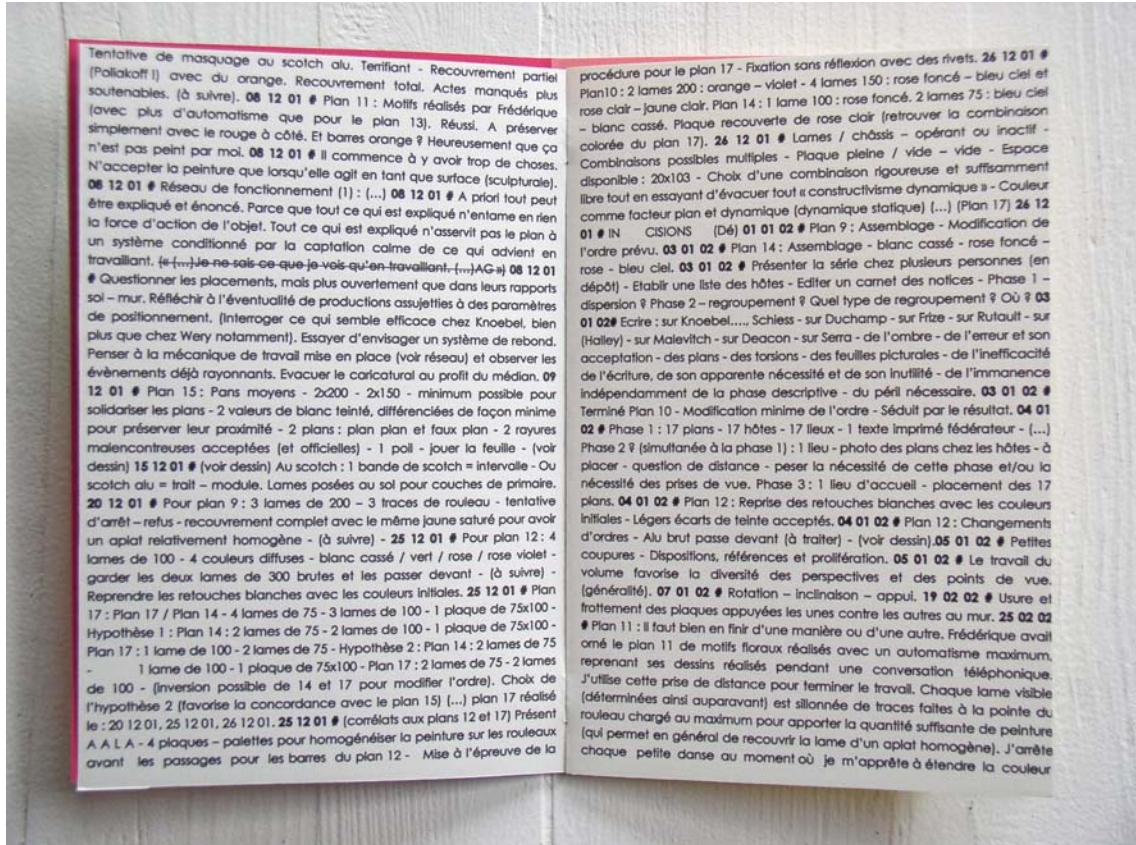 Tentative de masquage au scotch alu. Terrifiant - Recouvrement partiel
(Poliakoff I) avec du orange. Recouvrement total. Actes manqués plus
soutenables. (à suivre). 08 12 01 # Plan 11 : Motifs réalisés par Frédérique
(avec plus d'automatisme que pour le plan 13). Réussi. A préserver
simplement avec le rouge à côté. Et barres orange ? Heureusement que ça
n'est pas peint par moi. 08 12 01 # Il commence à y avoir trop de choses.
N'accepter la peinture que lorsqu'elle agit en tant que surface (sculpturale).
08 12 01 # Réseau de fonctionnement (1) : (...) 08 12 01 # A priori tout peut
être expliqué et énoncé. Parce que tout ce qui est expliqué n'entame en rien
la force d'action de l'objet. Tout ce qui est expliqué n'asservit pas le plan à
un système conditionné par la captation calme de ce qui advient en
travaillant. (« (...)Je ne sais ce que je vois qu'en travaillant. (...)AG ») 08 12 01
# Questionner les placements, mais plus ouvertement que dans leurs rapports
sol – mur. Réfléchir à l'éventualité de productions assujetties à des paramètres
de positionnement. (Interroger ce qui semble efficace chez Knoebel, bien
plus que chez Wery notamment). Essayer d'envisager un système de rebond.
Penser à la mécanique de travail mise en place (voir réseau) et observer les
évènements déjà rayonnants. Evacuer le caricatural au profit du médian. 09
12 01 # Plan 15 : Pans moyens - 2x200 - 2x150 - minimum possible pour
solidariser les plans - 2 valeurs de blanc teinté, différenciées de façon minime
pour préserver leur proximité - 2 plans : plan plan et faux plan - 2 rayures
malencontreuses acceptées (et officielles) - 1 poil - jouer la feuille - (voir
dessin) 15 12 01 # (voir dessin) Au scotch : 1 bande de scotch = intervalle - Ou
scotch alu = trait – module. Lames posées au sol pour couches de primaire.
20 12 01 # Pour plan 9 : 3 lames de 200 – 3 traces de rouleau - tentative
d'arrêt – refus - recouvrement complet avec le même jaune saturé pour avoir
un aplat relativement homogène - (à suivre) - 25 12 01 # Pour plan 12 : 4
lames de 100 - 4 couleurs diffuses - blanc cassé / vert / rose / rose violet -
garder les deux lames de 300 brutes et les passer devant - (à suivre) -
Reprendre les retouches blanches avec les couleurs initiales. 25 12 01 # Plan
17 : Plan 17 / Plan 14 - 4 lames de 75 - 3 lames de 100 - 1 plaque de 75x100 -
Hypothèse 1 : Plan 14 : 2 lames de 75 - 2 lames de 100 - 1 plaque de 75x100 -
Plan 17 : 1 lame de 100 - 2 lames de 75 - Hypothèse 2 : Plan 14 : 2 lames de 75
- 1 lame de 100 - 1 plaque de 75x100 - Plan 17 : 2 lames de 75 - 2 lames
de 100 - (inversion possible de 14 et 17 pour modifier l'ordre). Choix de
l'hypothèse 2 (favorise la concordance avec le plan 15) (...) plan 17 réalisé
le : 20 12 01, 25 12 01, 26 12 01. 25 12 01 # (corrélats aux plans 12 et 17) Présent
A A L A - 4 plaques – palettes pour homogénéiser la peinture sur les rouleaux
avant les passages pour les barres du plan 12 - Mise à l'épreuve de la
procédure pour le plan 17 - Fixation sans réflexion avec des rivets. 26 12 01 #
Plan10 : 2 lames 200 : orange – violet - 4 lames 150 : rose foncé – bleu ciel et
rose clair – jaune clair. Plan 14 : 1 lame 100 : rose foncé. 2 lames 75 : bleu ciel
– blanc cassé. Plaque recouverte de rose clair (retrouver la combinaison
colorée du plan 17). 26 12 01 # Lames / châssis – opérant ou inactif -
Combinaisons possibles multiples - Plaque pleine / vide – vide - Espace
disponible : 20x103 - Choix d'une combinaison rigoureuse et suffisamment
libre tout en essayant d'évacuer tout « constructivisme dynamique » - Couleur
comme facteur plan et dynamique (dynamique statique) (...) (Plan 17) 26 12
01 # IN CISIONS (Dé) 01 01 02 # Plan 9 : Assemblage - Modification de
l'ordre prévu. 03 01 02 # Plan 14 : Assemblage - blanc cassé - rose foncé –
rose - bleu ciel. 03 01 02 # Présenter la série chez plusieurs personnes (en
dépôt) - Etablir une liste des hôtes - Editer un carnet des notices - Phase 1 –
dispersion ? Phase 2 – regroupement ? Quel type de regroupement ? Où ? 03
01 02# Ecrire : sur Knoebel...., Schiess - sur Duchamp - sur Frize - sur Rutault - sur
(Halley) - sur Malevitch - sur Deacon - sur Serra - de l'ombre - de l'erreur et son
acceptation - des plans - des torsions - des feuilles picturales - de l'inefficacité
de l'écriture, de son apparente nécessité et de son inutilité - de l'immanence
indépendamment de la phase descriptive - du péril nécessaire. 03 01 02 #
Terminé Plan 10 - Modification minime de l'ordre - Séduit par le résultat. 04 01
02 # Phase 1 : 17 plans - 17 hôtes - 17 lieux - 1 texte imprimé fédérateur - (...)
Phase 2 ? (simultanée à la phase 1) : 1 lieu - photo des plans chez les hôtes - à
placer - question de distance - peser la nécessité de cette phase et/ou la
nécessité des prises de vue. Phase 3 : 1 lieu d'accueil - placement des 17
plans. 04 01 02 # Plan 12 : Reprise des retouches blanches avec les couleurs
initiales - Légers écarts de teinte acceptés. 04 01 02 # Plan 12 : Changements
d'ordres - Alu brut passe devant (à traiter) - (voir dessin).05 01 02 # Petites
coupures - Dispositions, références et prolifération. 05 01 02 # Le travail du
volume favorise la diversité des perspectives et des points de vue.
(généralité). 07 01 02 # Rotation – inclinaison – appui. 19 02 02 # Usure et
frottement des plaques appuyées les unes contre les autres au mur. 25 02 02
# Plan 11 : Il faut bien en finir d'une manière ou d'une autre. Frédérique avait
orné le plan 11 de motifs floraux réalisés avec un automatisme maximum,
reprenant ses dessins réalisés pendant une conversation téléphonique.
J'utilise cette prise de distance pour terminer le travail. Chaque lame visible
(déterminées ainsi auparavant) est sillonnée de traces faites à la pointe du
rouleau chargé au maximum pour apporter la quantité suffisante de peinture
(qui permet en général de recouvrir la lame d'un aplat homogène). J'arrête
chaque petite danse au moment où je m'apprête à étendre la couleur